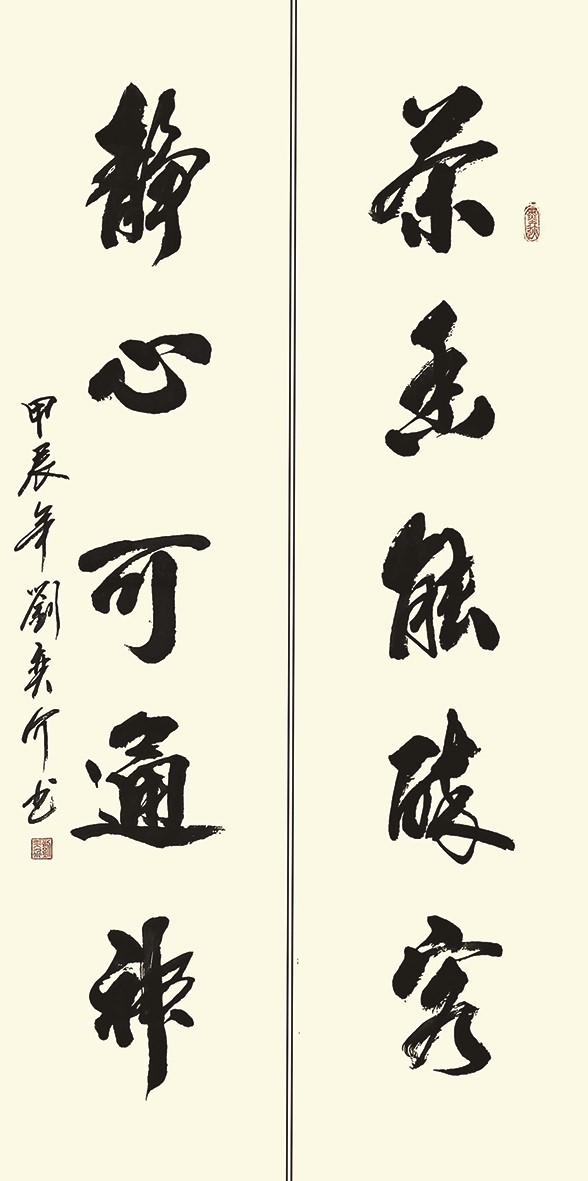 茶香能醉客
静心可通神
甲辰年劉奕介书